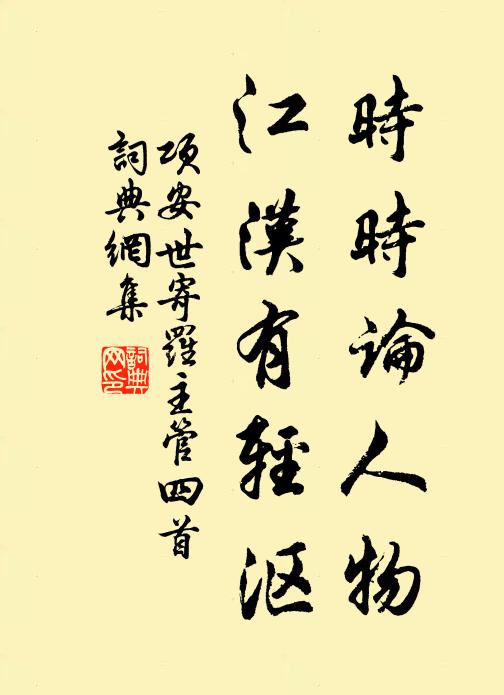 時時論人物
江漢有輕漚
項安世寄羅主管四首
詞典網集
詞典網印